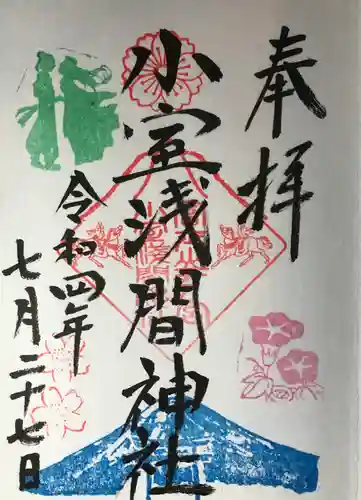 奉拝
小室浅間神社
令和四年
七月二十七日